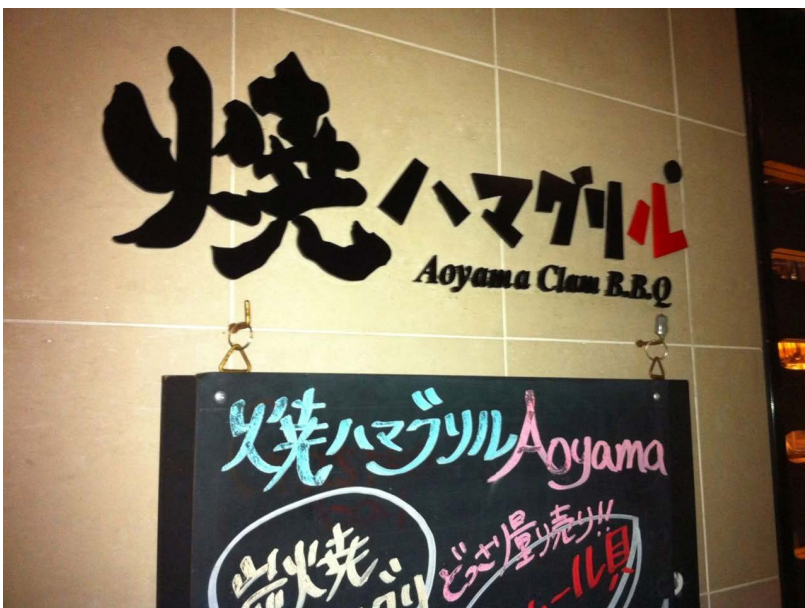 焼ハマグリル
Aoyama Clam B.B.Q
焼ハマグリル Aoyama
炭火焼
どっさり量り売り!!